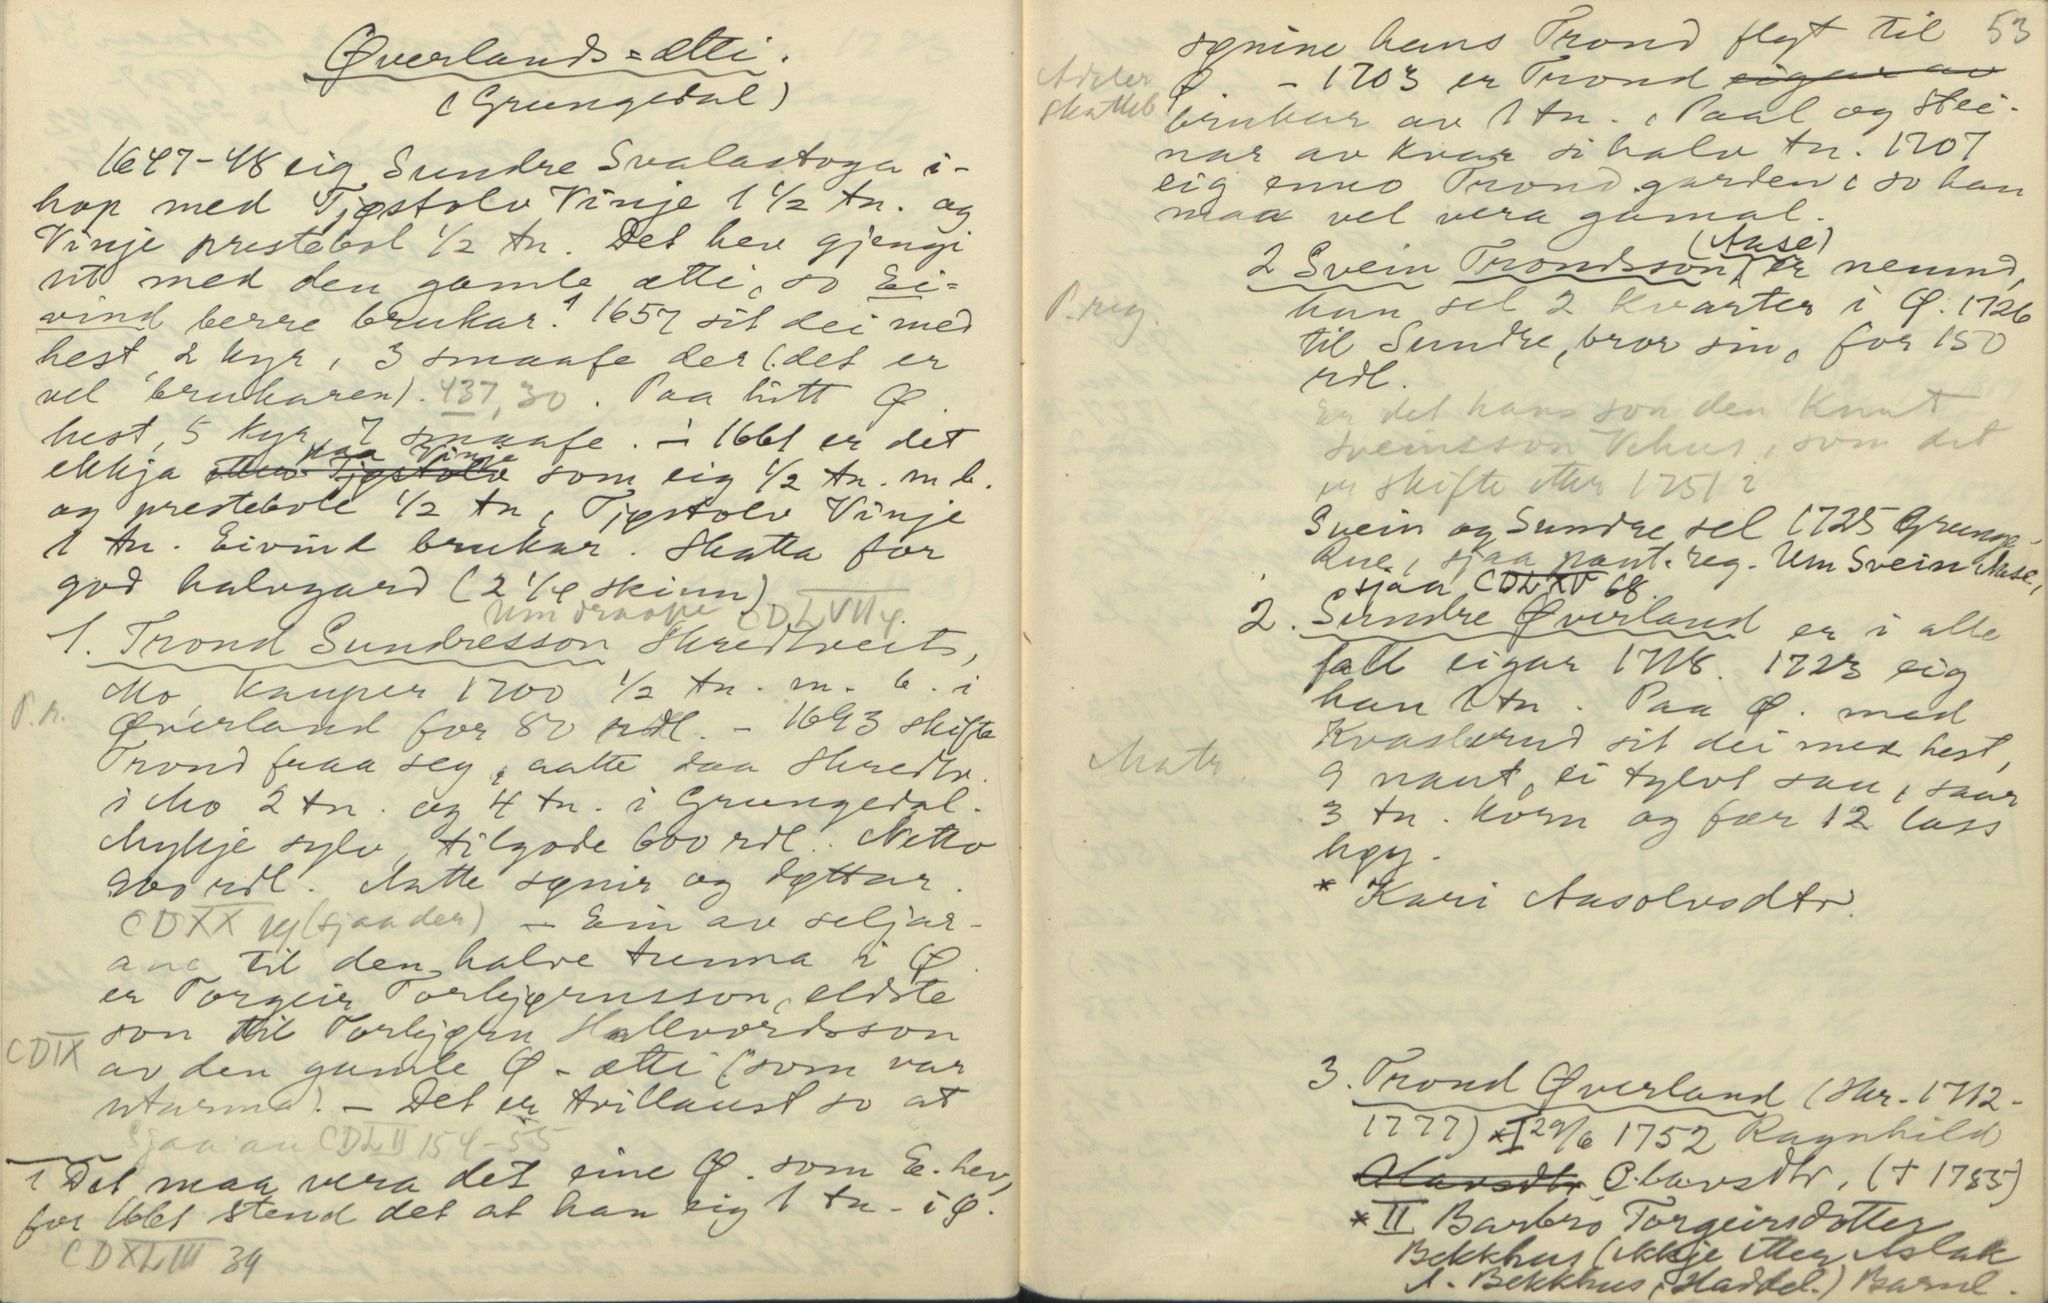 Øverlands=ætti.
(Grungedal)
1647-48 eig Sundre Svalastoga i-
hop med Tjøstolv Vinje 1 1/2 tn. og
Vinje prestebol 1/2 tn. Det hev gjengi
ut med den gamle ætti, so Ei=
vind berre brukar.¹ 1657 sit dei med
hest, 2 kyr, 3 smaafe der (det er
vel brukaren). 437, 30. Paa litt Ø.
hest, 5 kyr, 7 smaafe. – 1661 er det
paa Vinje
ekkja etter Tjøstolv som eig 1/2 tn. m.b.
og prestebole 1/2 tn, Tjøstolv Vinje
1 tn. Eivind brukar. Skatta for
god halvgard (2 1/4 skinn)
Um draape CDLVII 4.
1. Trond Sundresson Skredtveit,
Mo, kauper 1700 1/2 tn. m. b. i
P.r.
Øverland for 80 rdl. – 1693 skifte
Trond fraa seg, aatte daa Skredtv.
i Mo 2 tn. og 4 tn. i Grungedal.
Mykje sylv, tilgode 600 rdl. Netto
960 rdl. Aatte sønir og døttar.
CDXX (sjaa der) – Ein av seljar-
ane til den halve tunna i Ø.
er Torgeir Torbjørnsson, eldste
son til Torbjørn Hallvordsson
CDIX
av den gamle Ø-ætti (som var
utarma). – Det er tvillaust so at
Sjaa au CDLII 154-55
1 Det maa vera det eine Ø. som E. hev,
for 1661 stend det at han eig 1 tn – i Ø.
CDXLIII 39
53
sønine hans Trond flyt til
Ø. – 1703 er Trond eigar av
Skatteb
brukar av 1 tn., Paal og Stei-
nar av kvar si halv tn. 1707
eig enno Trond garden, so han
maa vel vera gamal.
(Aase)
2 Svein Trondsson, er nemnd,
P.reg.
han sel 2 kvarter i Ø. 1726
til Sundre, bror sin, for 150
rdl.
Er det hans son den Knut
Sveinsson Vehus, som det
er skifte etter 1751?
Svein og Sundre sel 1725 Grunge-
Rue, sjaa pant.reg. Um Svein Aase,
sjaa CDLXV 68.
2. Sundre Øverland er i alle
fall eigar 1718. 1723 eig
han 1 tn. Paa Ø. med
Kvaslerud sit dei med hest,
Matr.
9 naut, ei tylvt sau, saar
3 tn. korn og fær 12 lass
høy.
* Kari Aasolvsdtr.
3. Trond Øverland (Skr. 1712-
1777) *I 29/6 1752 Ragnhild
Olavsdtr Olavsdtr. (+ 1785)
*II Barbro Torgeirsdotter
Bekkhus (ekkje etter Aslak
A. Bekkhus, Haddel.) Barnl.